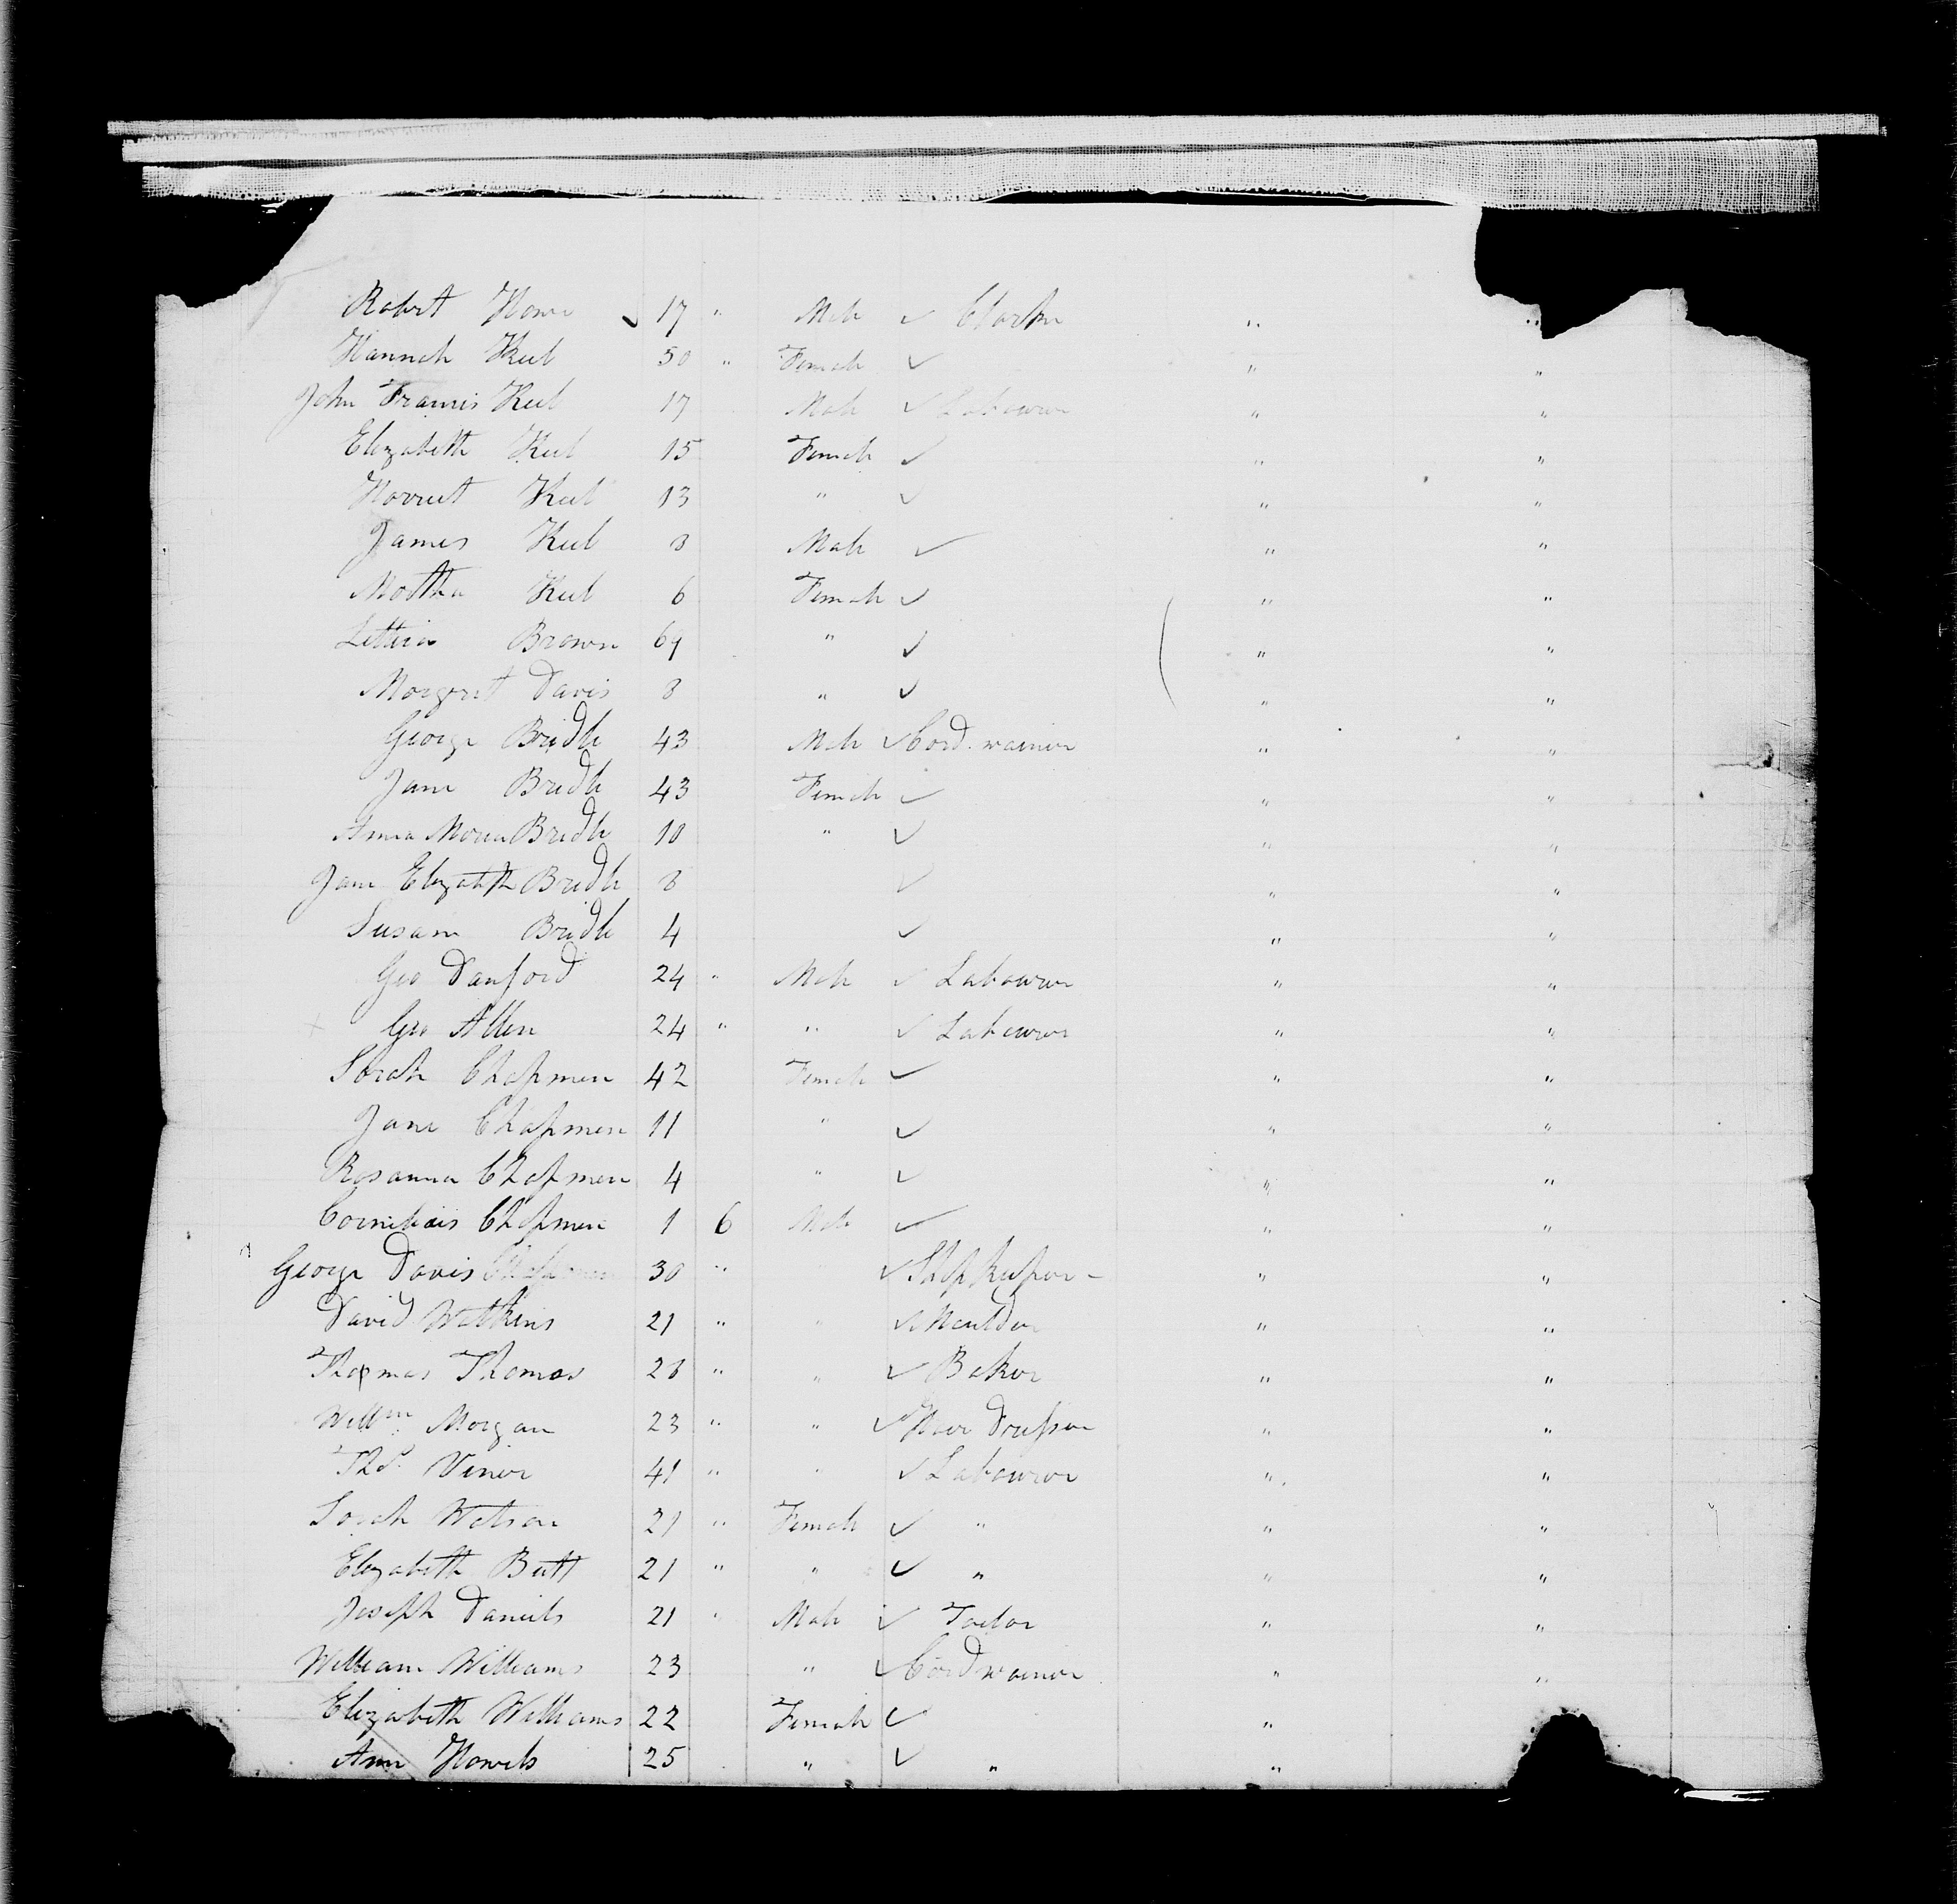 Robert Howe 17 " Male Clarke " "
Hannah Keel 50 " Female " "
John Francis Keel 17 Male Labourer " "
Elizabeth Keel 15 Female " "
Harriet Keel 13 " " "
James Keel 8 Male " "
Martha Keel 6 Female " "
Letticia Brown 69 " " "
Margaret Davis 8 " " "
George Bridle 43 Male Cordwainer " "
Jane Bridle 43 Female " "
Anna Maria Bridle 10 " " "
Jane Elizabeth Bridle 8 " "
Susann Bridle 4 " "
Geo Danford 24 " Male Labourer " "
Geo Allen 24 " " Labourer " "
Sarah Chapman 42 Female " "
Jane Chapman 11 " " "
Rosanna Chapman 4 " " "
Cornelius Chapman 1 6 Male " "
George Davis 30 " Shopkeeper - " "
David Watkins 21 " " Moulder " "
Thomas Thomas 28 " " Baker " "
Willm Morgan 23 " " Hair Dresser " "
Thos Viner 41 " " Labourer " "
Sarah Watson 21 " Female " " "
Elizabeth Butt 21 " " " " "
Joseph Daniels 21 " Male Tailor " "
William Williams 23 " Cordwainer " "
Elizabeth Williams 22 Female "
Ann Howels 25 " " "